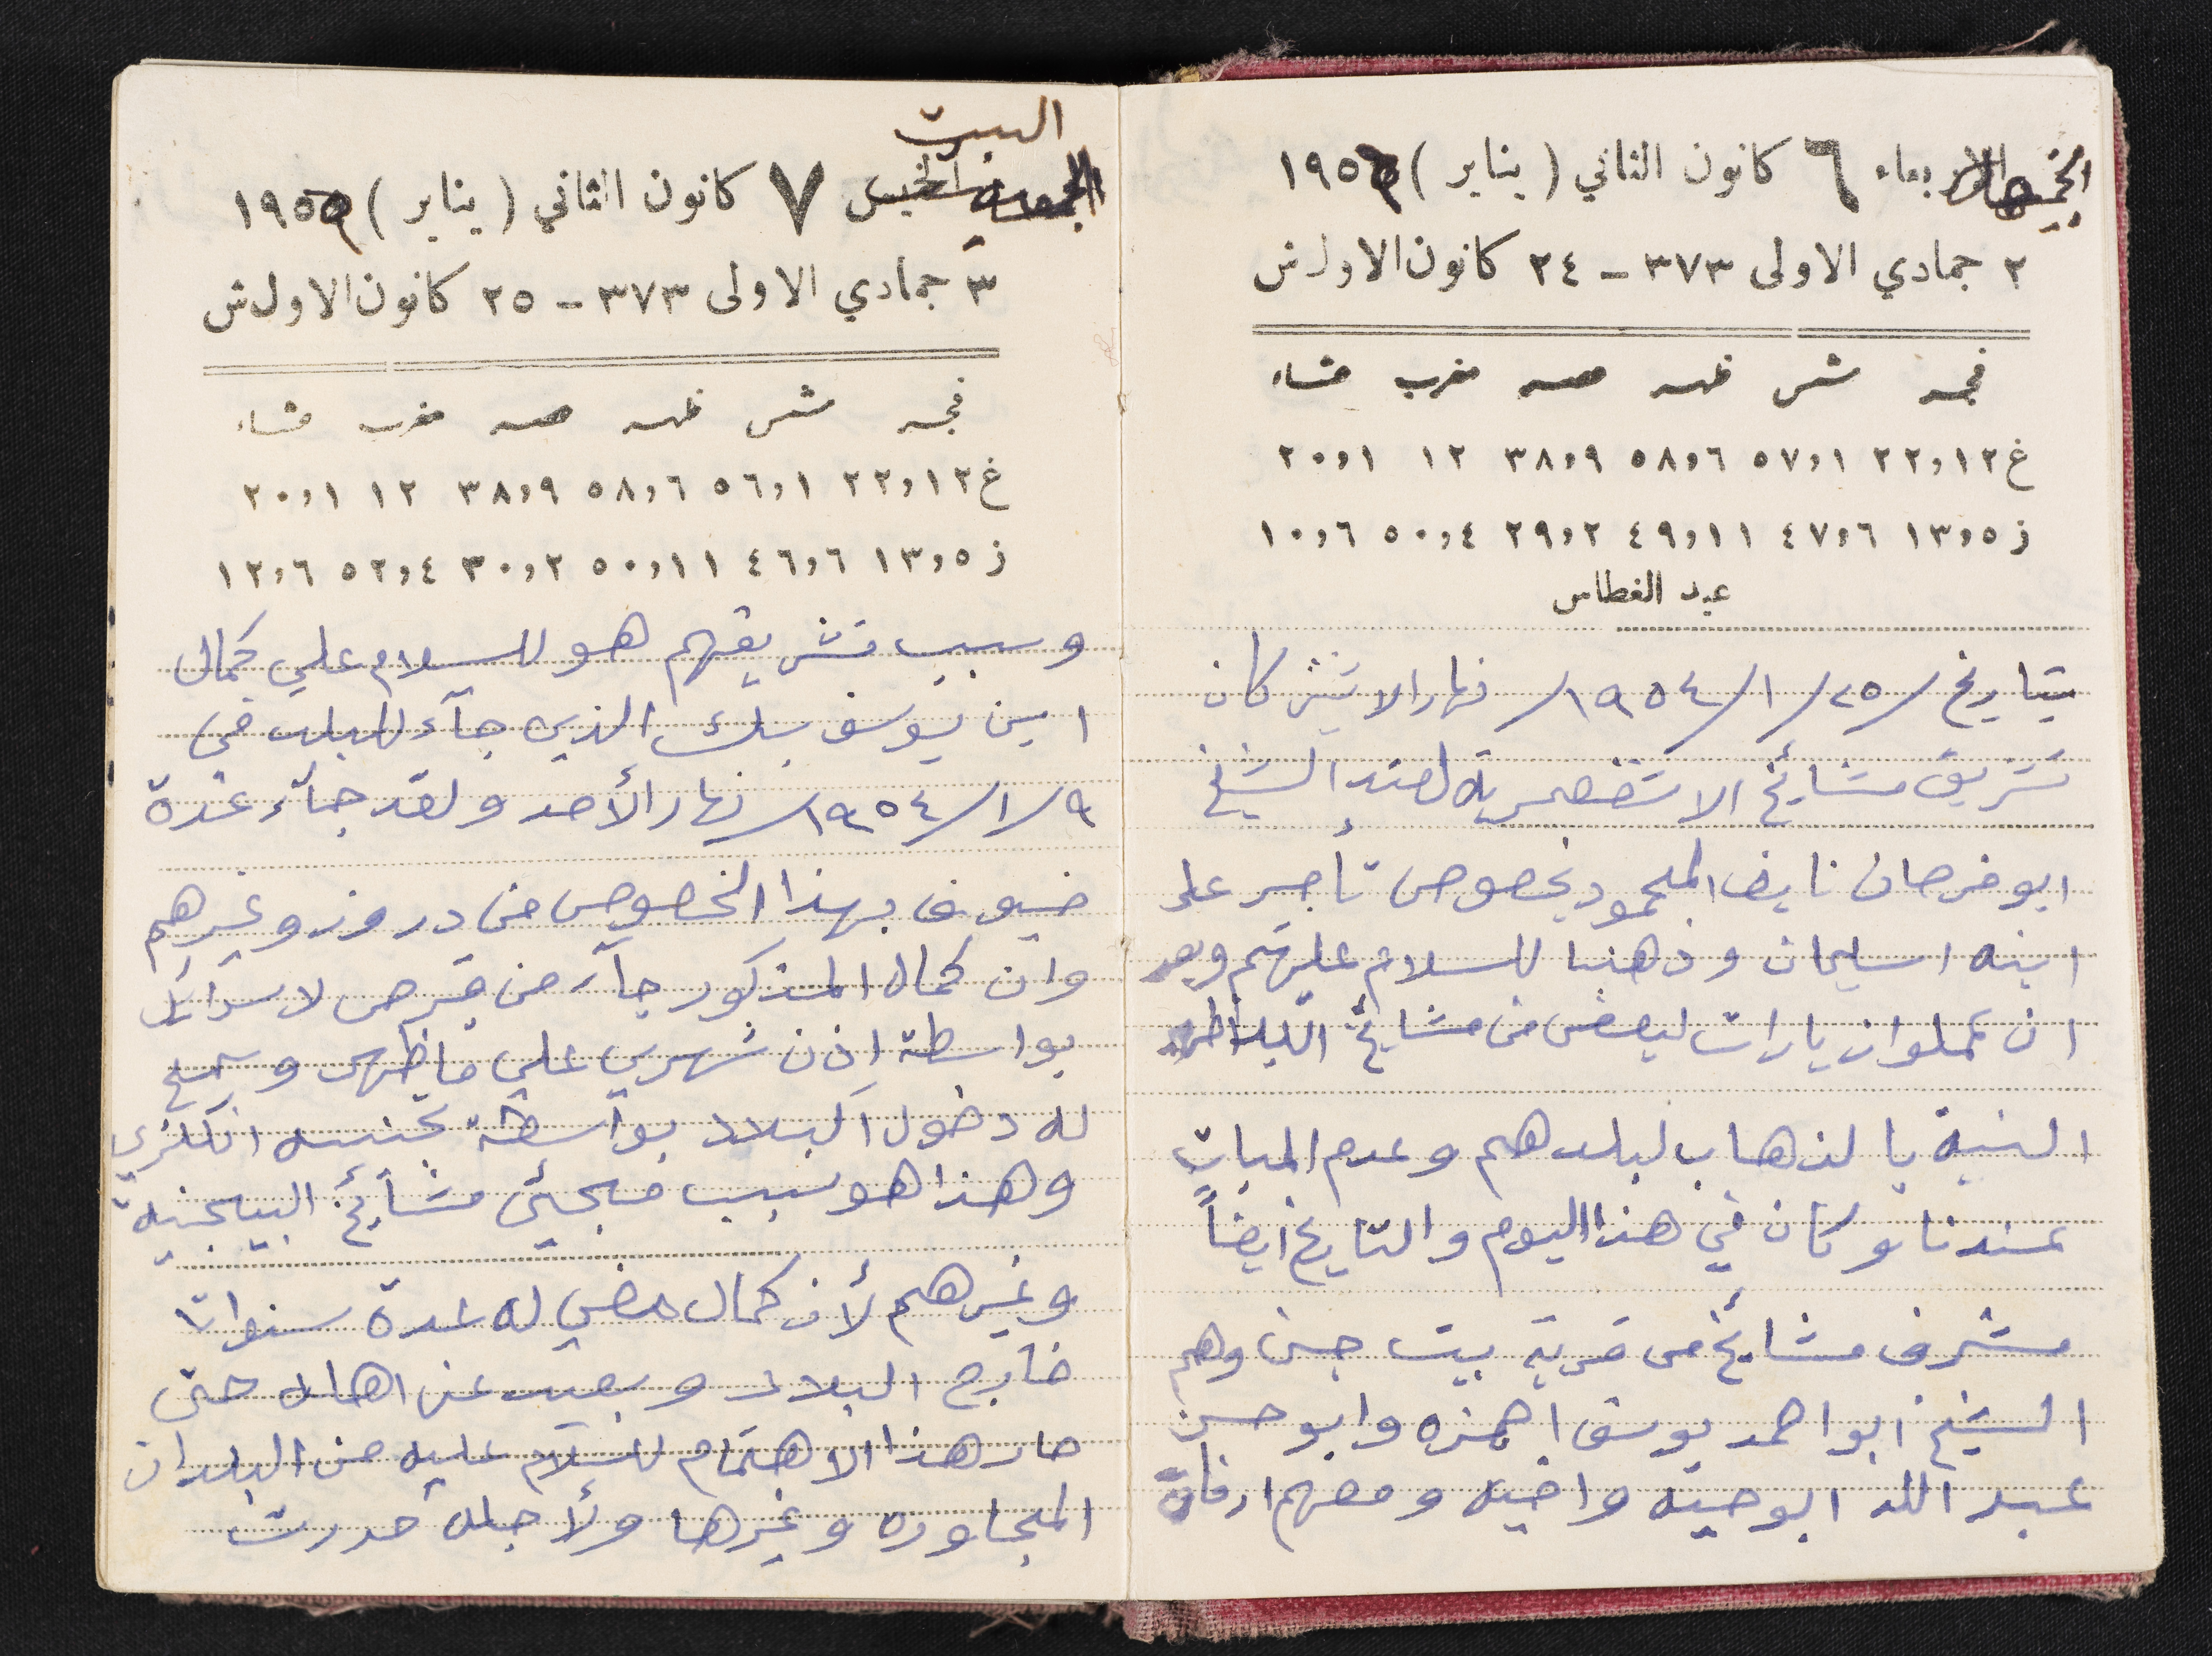 الاربعاء ٦ كانون الثاني ( يناير ) ١٩٥
٢ جمادي الاولى ٣٧٣ – ٢٤ كانون الاول ش
فجر شمس ظهر عصر مغرب عشاء
غ ١٢,٢٢ ١,٥٧ ٦,٥٨ ٩,٣٨ ١٢ ١,٢٠
ز ٥,١٣ ٦,٤٧ ١١,٤٩ ٢,٢٩ ٤,٥٠ ٦,١٠
عيد الغطاس
بتاريخ /٢٥/١/١٩٥٤/ نهار الاثنين كان
تشريف مشائخ لعند الشيخ
ابو فرحان نايف المحمود بخصوص تأجير على
ابنه اسليمان وذهبنا للسلام عليهم وبعد
ان عملوا زيارات لبعض من مشائخ البلد
النية بالذهاب لبلدهم وعدم المبات
عندنا وكان في هذا اليوم والتاريخ ايضاً
مشرف مشائخ من قرية بيت جن وهم
الشيخ ابو احمد يوسف احمزه وابو حسن
عبد الله ابو حيه واخيه ومعهم ارفاقة
البيت
الجمعه الخميس ٧ كانون الثاني ( يناير ) ١٩٥
٣ جمادي الاولى ٣٧٣ – ٢٥ كانون الاول ش
فجر شمس ظهر عصر مغرب عشاء
غ ١٢,٢٢ ١,٥٦ ٦,٥٨ ٩,٣٨ ١٢ ١,٢٠
ز ٥,١٣ ٦,٤٦ ١١,٥٠ ٢,٣٠ ٤,٥٢ ٦,١٢
وسبب تشريفهم هو للسلام علي كمال
امين يوسف بك الذي جآء للبلد في
٩/١/١٩٥٤/ نهار الأحد ولقد جآء عدة
ضيوف بهذا الخصوص من دروز وغيرهم
وان كمال المذكور جآء من قبرص لاسرائيل
بواسطة اذن شهري علي ما ظهر وسمح
له دخول البلاد بواسطة تجنسه انكلزي
وهذا هو سبب مجيئ مشائخ البيجنية
وغيرهم لأن كمال مضي له عدة سنوات
خارج البلاد وبعيد عن اهاله حتى
صار هذا الاهتمام للسلام عليه من البلدان
المجاوره وغيرها ولأجله حررت